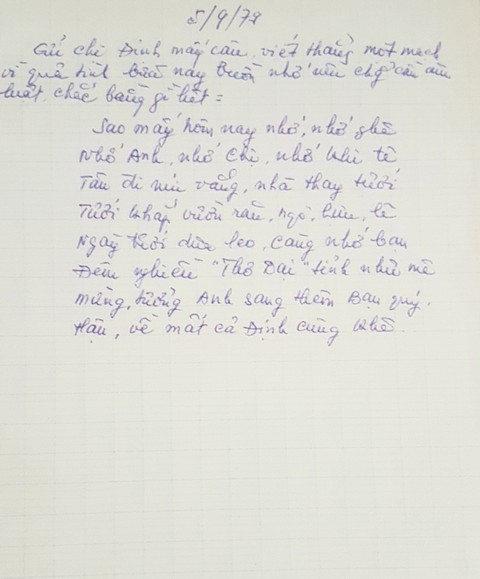 5/9/79
Gửi chị Đinh mấy câu, viết thẳng một mạch
vì quá tình biến nay buồn nhớ nên chẳng cần âm
luật, chắc bằng gì hết =
Sao mấy hôm nay nhớ, nhớ ghê
Nhớ Anh, nhớ Chị, nhớ khi tê
Tân đi níu vắng, nhà thay tưới
Tưới khắp vườn rau, ngò, hẹ, lê
Ngày tưới dưa leo, càng nhớ bạn
Đêm nghiền "Thơ Dại" tỉnh như mê
mừng, tưởng Anh sang thêm Bạn quý.
Hậu, về mất cả Định cùng Khê.